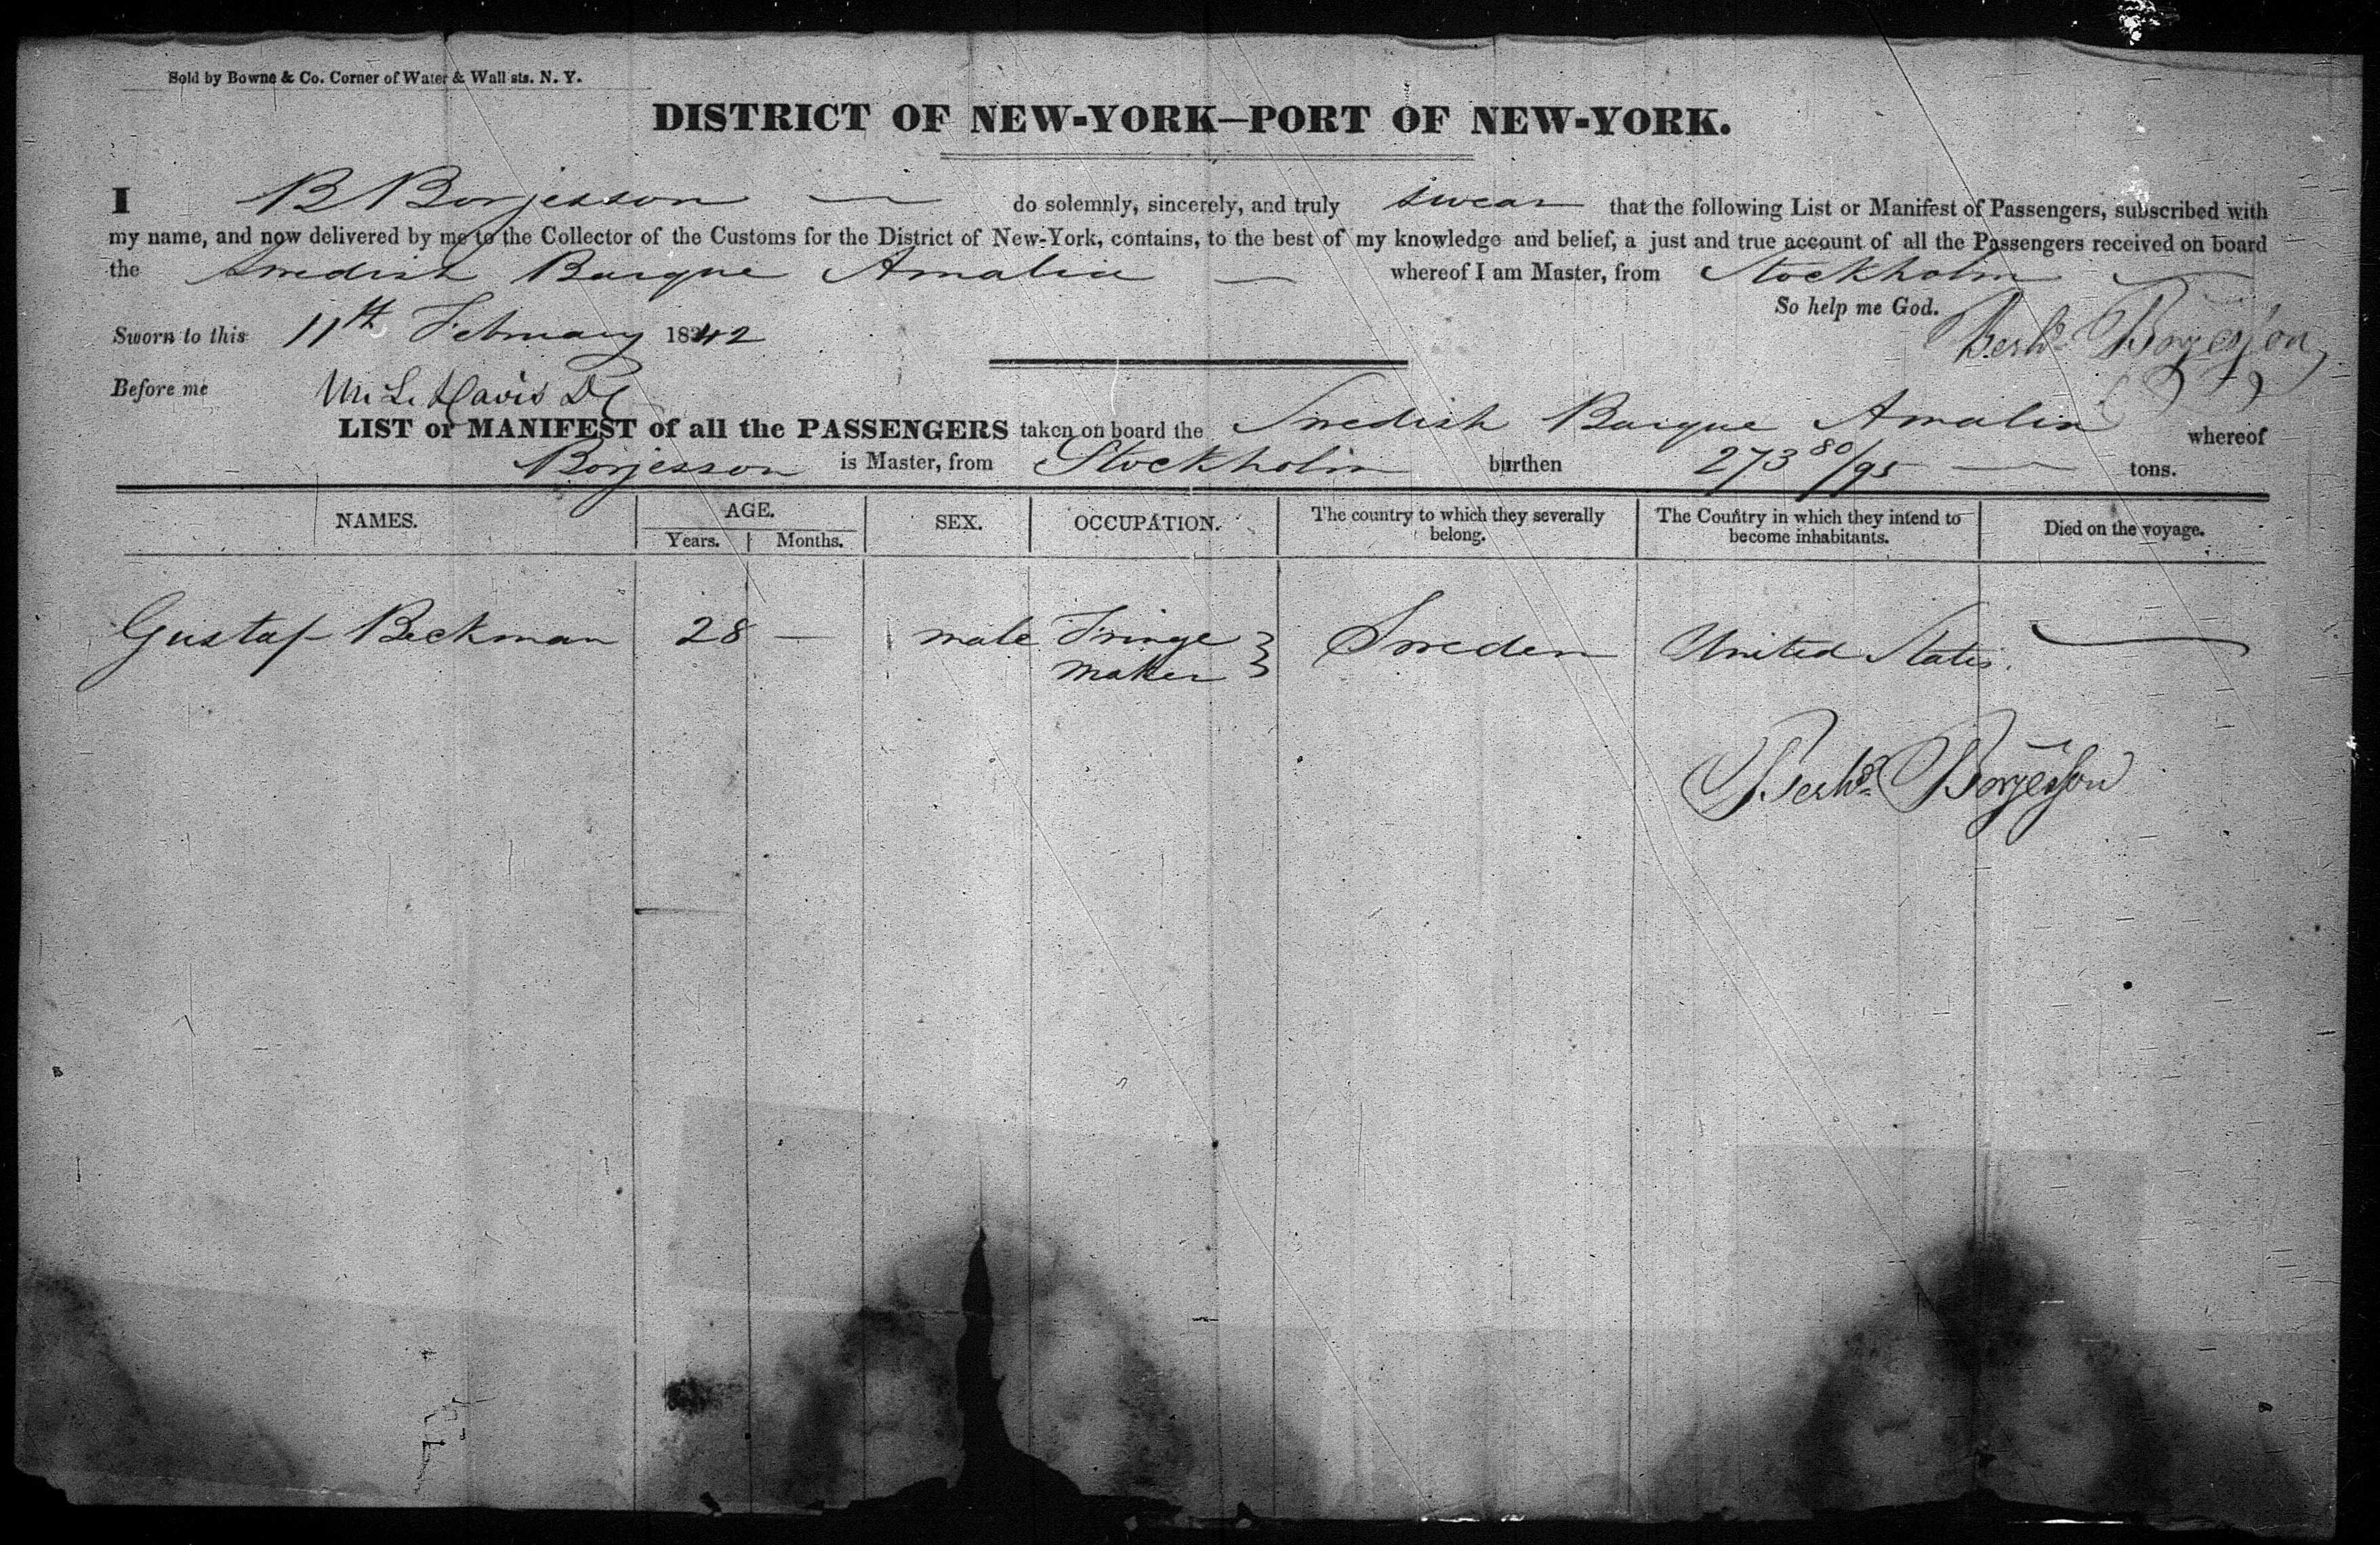 Sold by Bowne & Co. Corner of Water & Wall sts. N. Y.
DISTRICT OF NEW-YORK—PORT OF NEW-YORK.
I B Borjesson — do solemnly, sincerely, and truly swear that the following List or Manifest of Passengers, subscribed with
my name, and now delivered by me to the Collector of the Customs for the District of New-York, contains, to the best of my knowledge and belief, a just and true account of all the Passengers received on board
the Swedish Barque Amalia — whereof I am Master, from Stockholm
So help me God.
Sworn to this 11th February 1842
Borjesson
Before me Davis
LIST or MANIFEST of all the PASSENGERS taken on board the Swedish Barque Amalia whereof
Borjesson is Master, from Stockholm burthen 273 80/95 — tons.
NAMES. AGE. SEX. OCCUPATION. The country to which they severally belong. The Country in which they intend to become inhabitants. Died on the voyage.
Years. Months.
Gustaf Beckman 28 — male Fringe maker Sweden United States. —
Borjesson